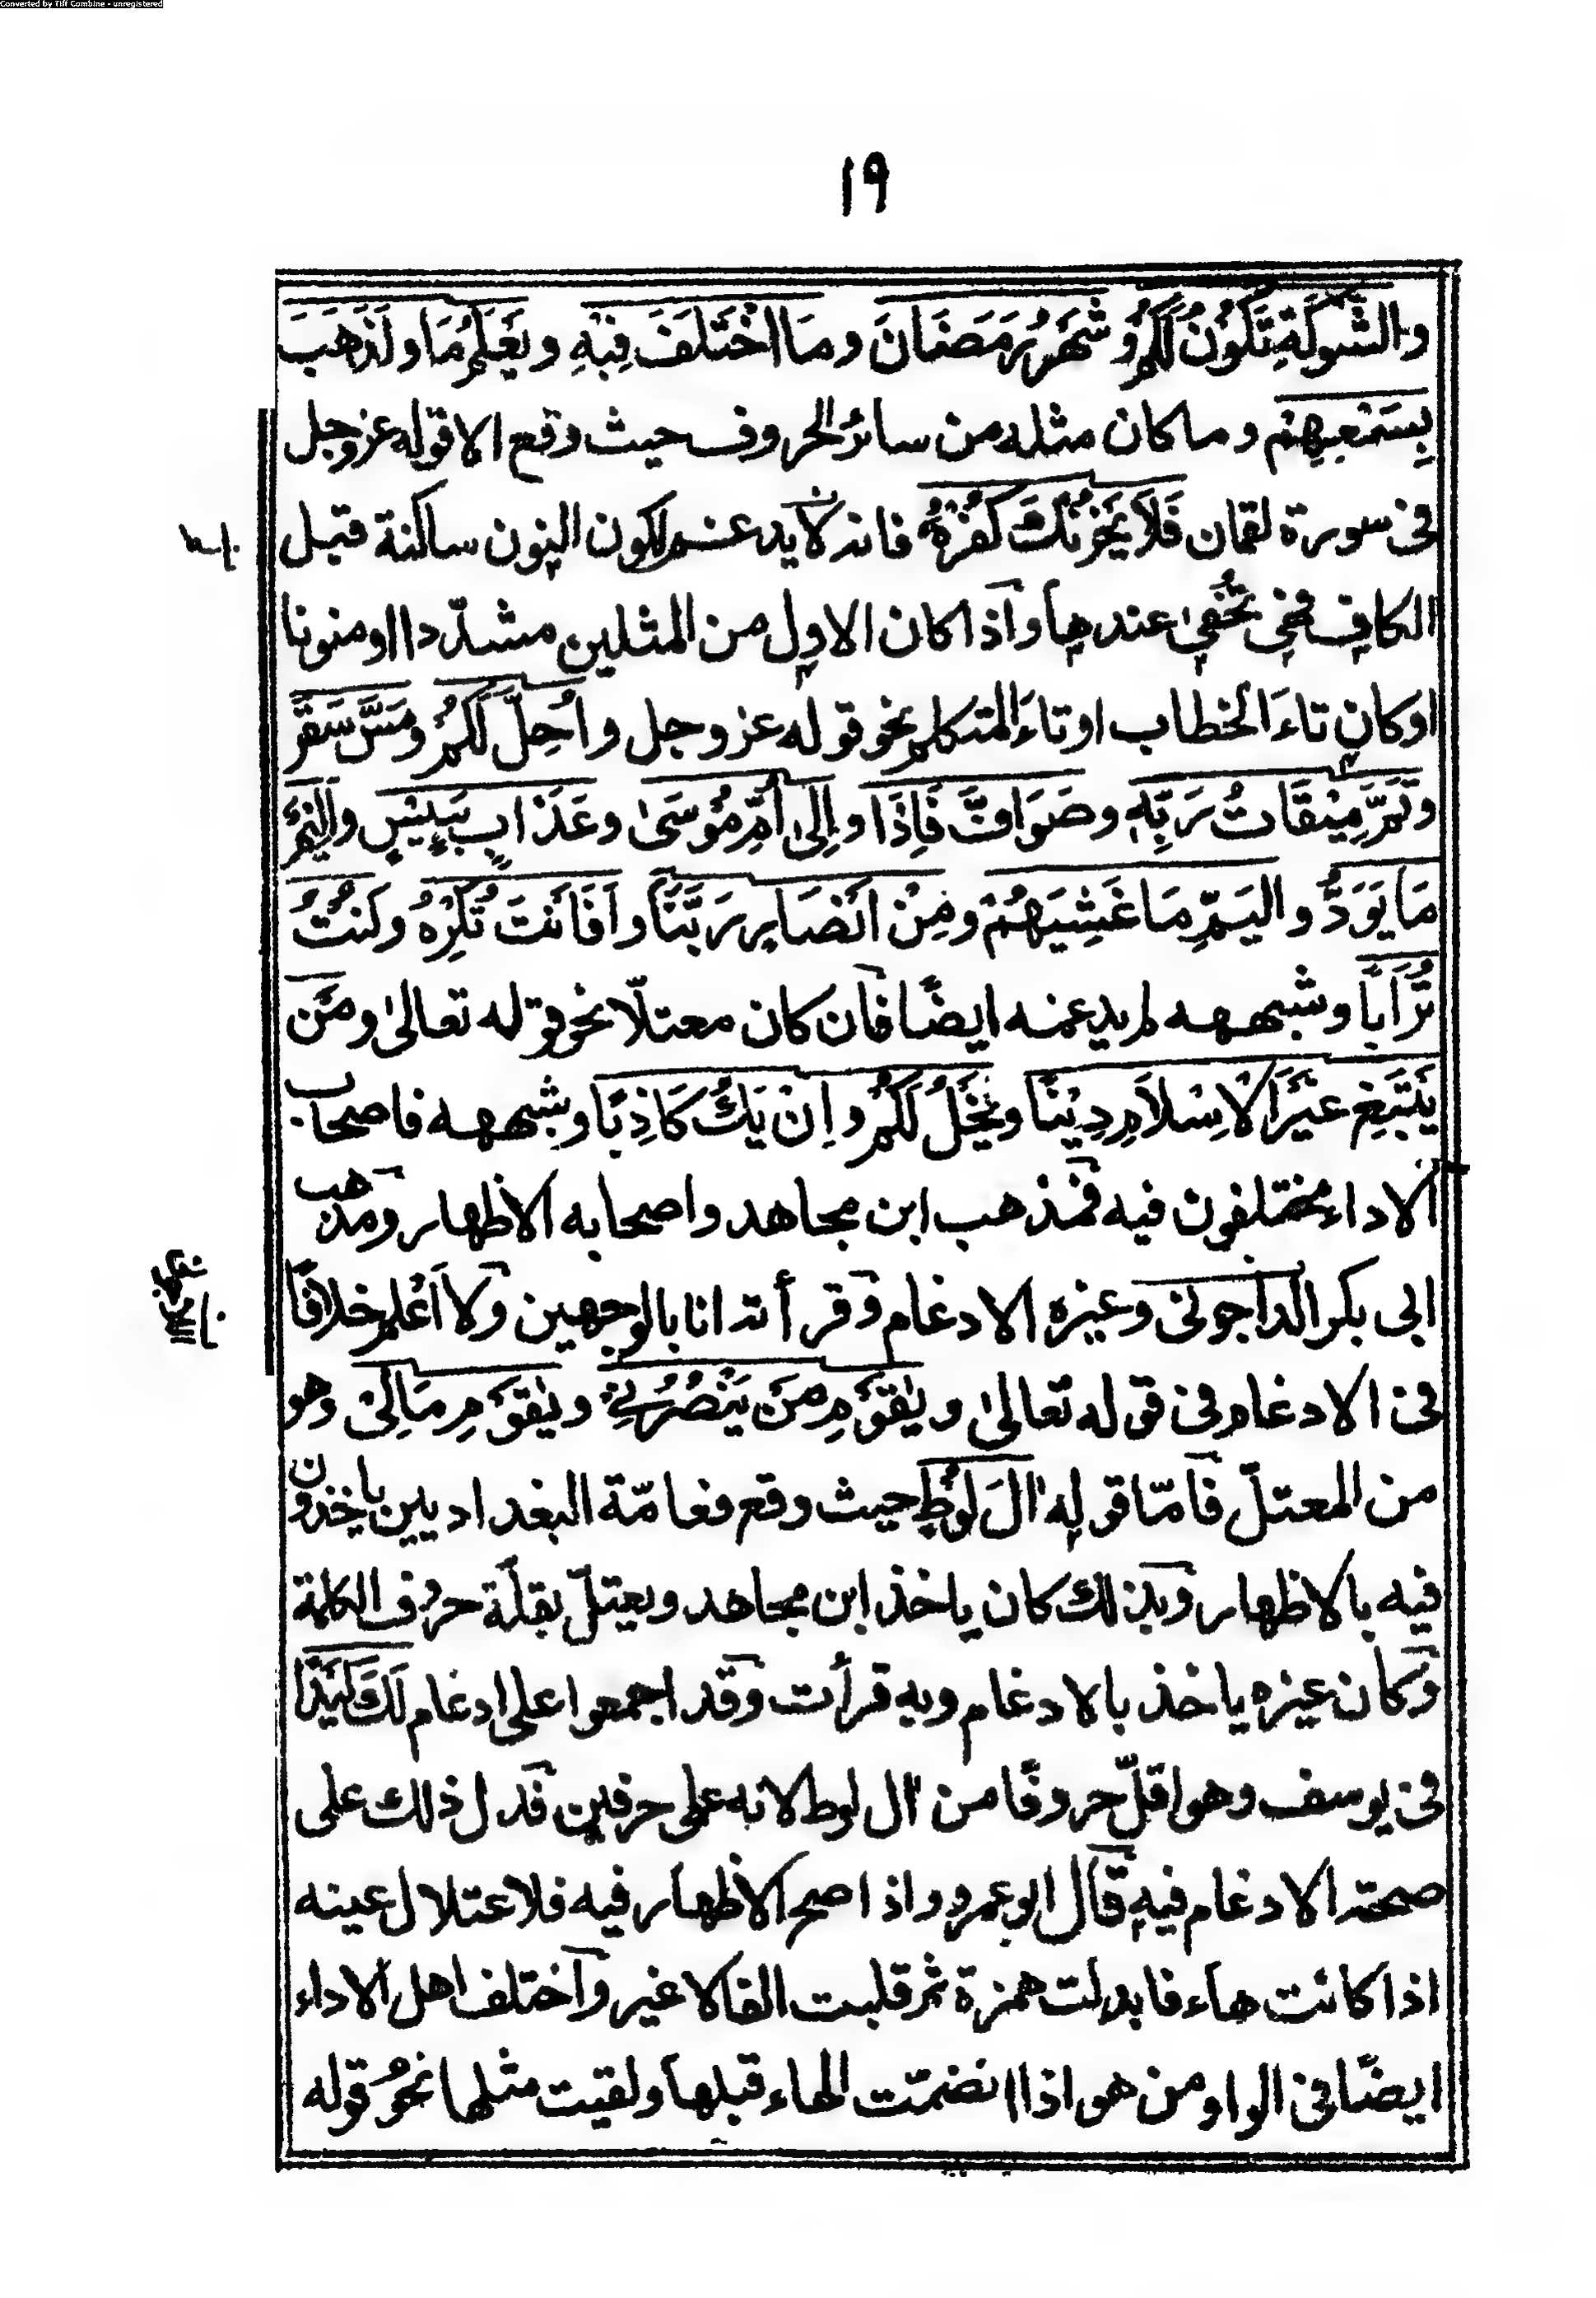 Converted by Tiff Combine - unregistered
١٩
والشَّوْكَةِ تَّكُوْنُ لَكُمْ وشَهْرُ رَمَضَانَ ومَا اخْتَلَفَ فِيْهِ ويَعْلَمُ مَا ولَذَهَبَ
بِسَمْعِهِمْ وما كان مثله من سائر الحروف حيث وقع الا قوله عز وجل
فى سورة لقمان فَلاَ يَحْزُنْكَ كُفْرُهُ فانه لا يدغم لكون النون ساكنة قبل
الكاف فهى تُخْفىٰ عندها واذا كان الاول من المثلين مشدّدا او منونا
او كان تاءَ الخطاب او تاءَ المتكلم نحو قوله عز وجل واُحِلَّ لَكُمْ ومَسَّ سَقَرَ
وتَمَّ مِيْقَاتُ رَبِّهٖ وصَوَافَّ فَاِذَا واِلىٰ اُمِّ مُوْسىٰ وعَذَابٍ بَئِيْسٍ واَلِيْمٌ
مَا يَوَدُّ واليَمِّ مَا غَشِيَهُمْ ومِنْ اَنْصَارٍ رَبَّنَا واَفَاَنْتَ تُكْرِهُ وكُنْتُ
تُرَابًا وشبهه لم يدغمه ايضًا فان كان معتلّا نحو قوله تعالىٰ ومَنْ
يَبْتَغِ غَيْرَ الْاِسْلاَمِ دِيْنًا ويَخْلُ لَكُمْ واِنْ يَكُ كَاذِبًا وشبهه فاصحاب
الاداء مختلفون فيه فمذهب ابن مجاهد واصحابه الاظهار ومذهب
ابى بكر الداجونى وغيره الادغام وقرأته انا بالوجهين ولا اَعْلم خلافًا
فى الادغام فى قوله تعالىٰ ويٰقَوْمِ مَنْ يَنْصُرُنِىْ ويٰقَوْمِ مَالِىْ وهو
من المعتلّ فامّا قوله اٰلَ لُوْطٍ حيث وقع فعامّة البغداديين ياخذون
فيه بالاظهار وبذلك كان ياخذ ابن مجاهد ويعتلّ بقلّة حروف الكلمة
وكان غيره ياخذ بالادغام وبه قرأت وقد اجمعوا على ادغام لَكَ كَيْدًا
فى يوسف وهو اقلّ حروفًا من اٰل لوط لانه على حرفين فدل ذلك على
صحة الادغام فيه قال ابو عمرو واذا صح الاظهار فيه فلاعتلال عينه
اذا كانت هاء فابدلت همزة ثم قلبت الفا لا غير واختلف اهل الاداء
ايضًا فى الواو من هو اذا انضمّت الهاء قبلها ولقيت مثلها نحوُ قوله